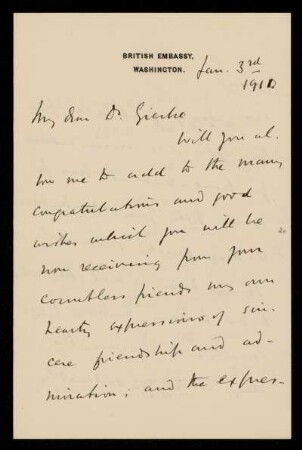 BRITISH EMBASSY,
WASHINGTON.
Jan. 3rd
1910
My dear Dr. Gierke
Will you al-
low me to add to the many
congratulations and good
wishes which you will be
now receiving from your
countless friends my own
hearty expressions of sin-
cere friendship and ad-
miration; and the expres-